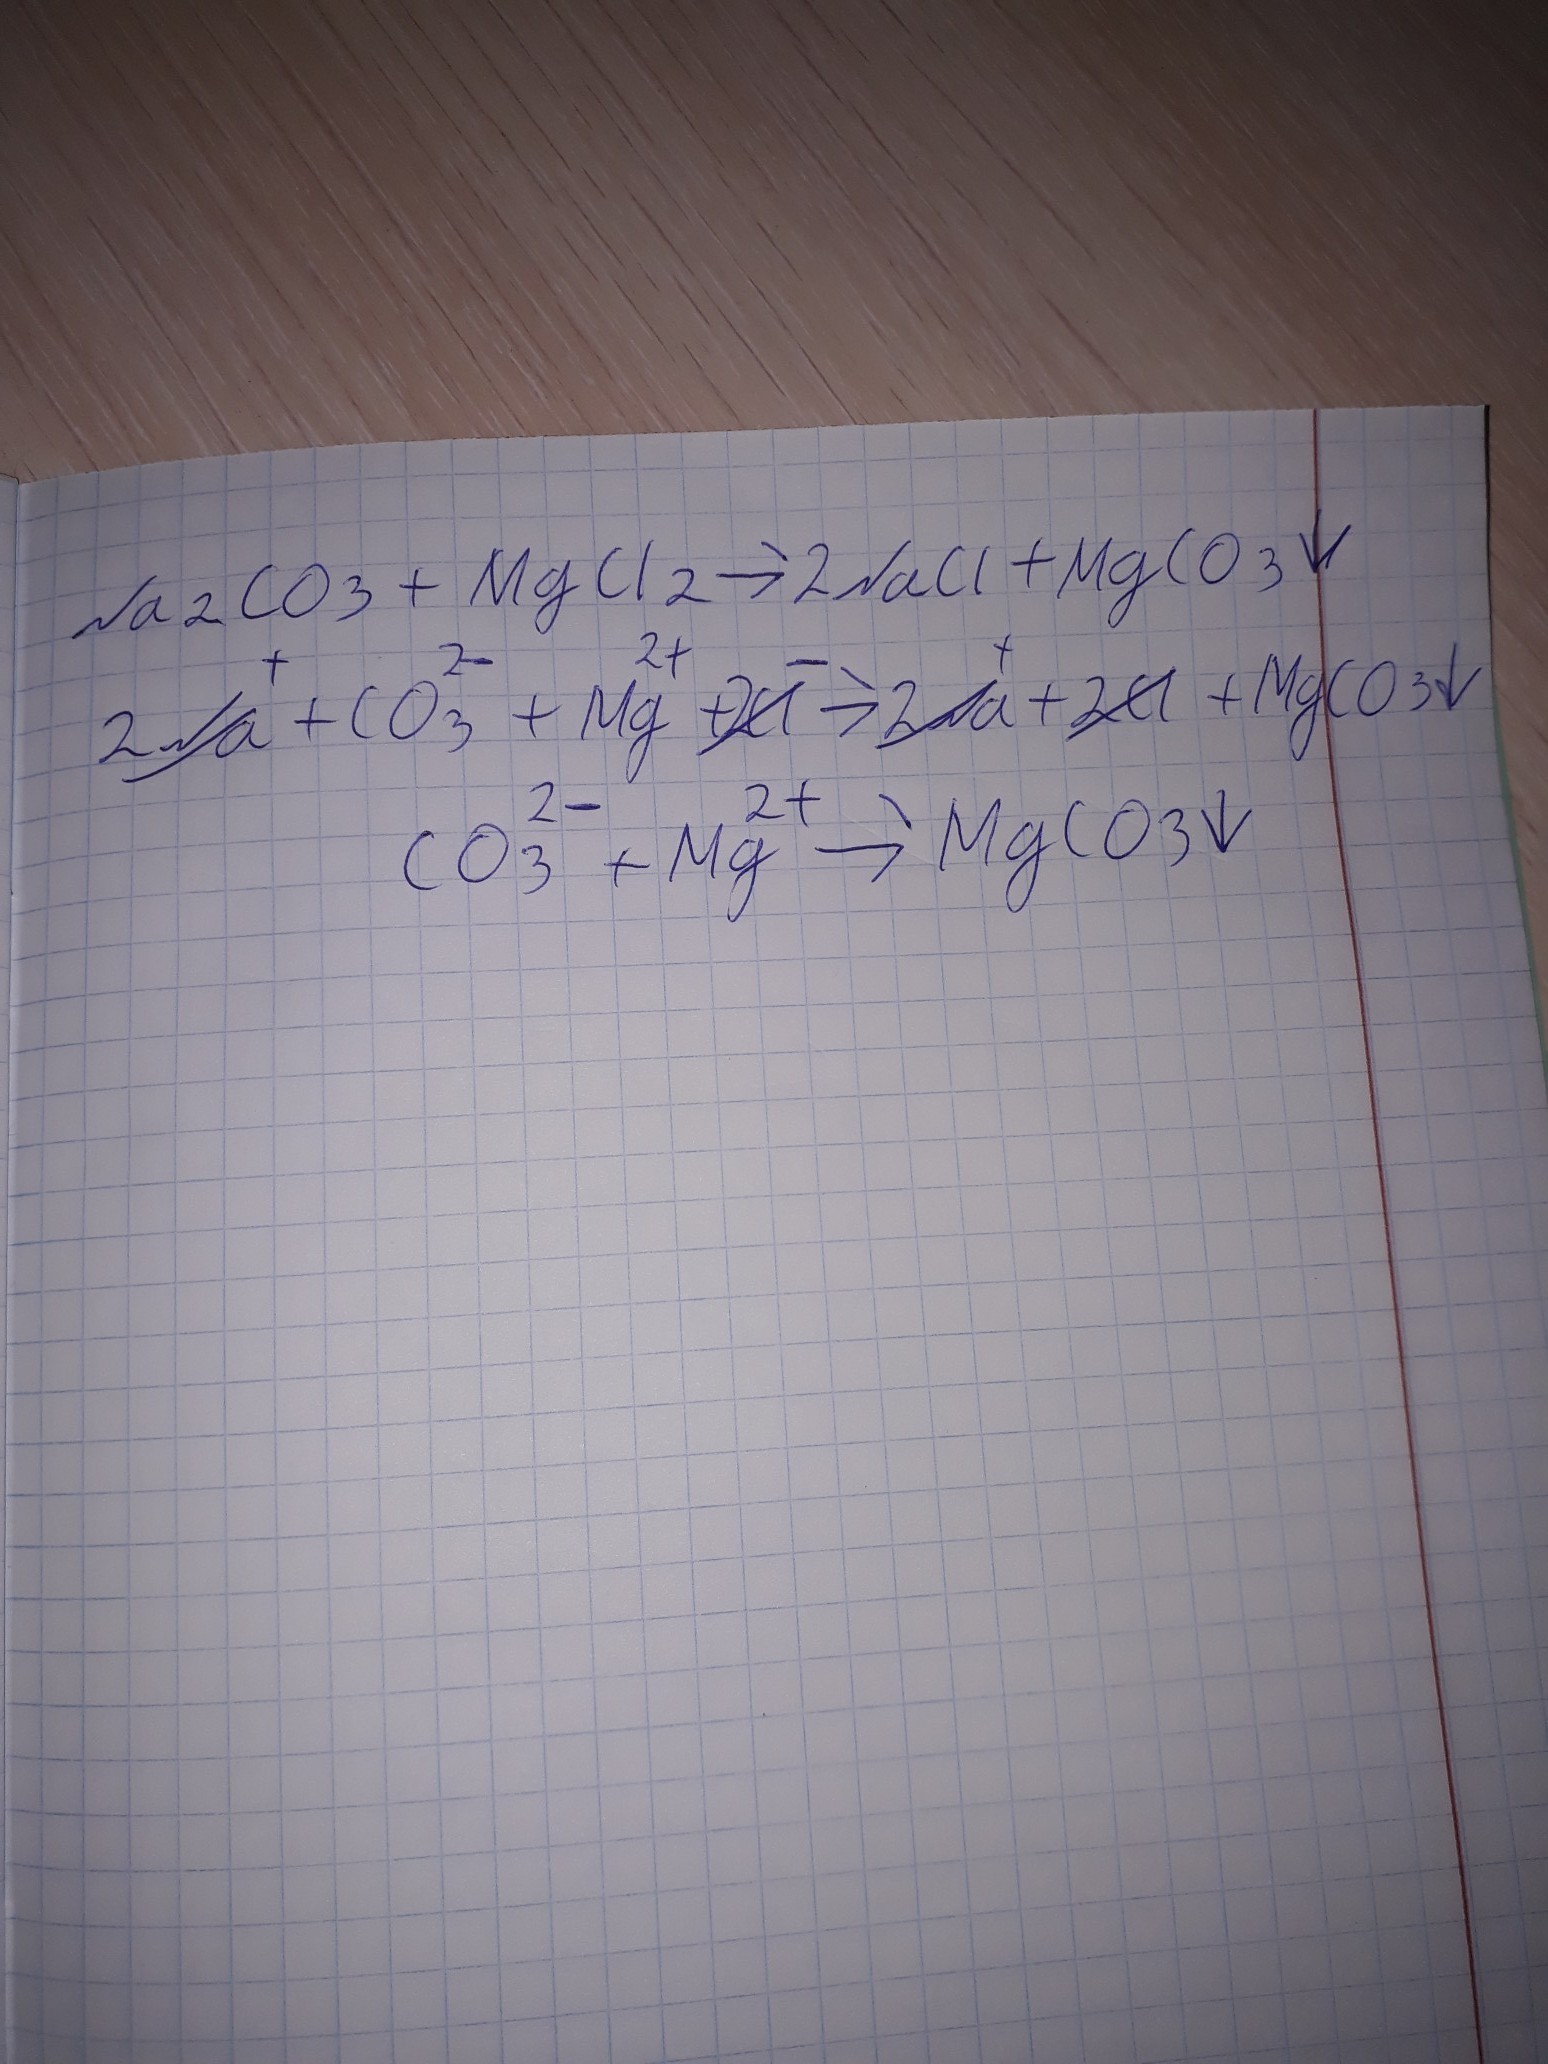 Na2CO3 + MgCl2 → 2NaCl + MgCO3↓
2Na⁺ + CO3²⁻ + Mg²⁺ + 2Cl⁻ → 2Na⁺ + 2Cl + MgCO3↓
CO3²⁻ + Mg²⁺ → MgCO3↓